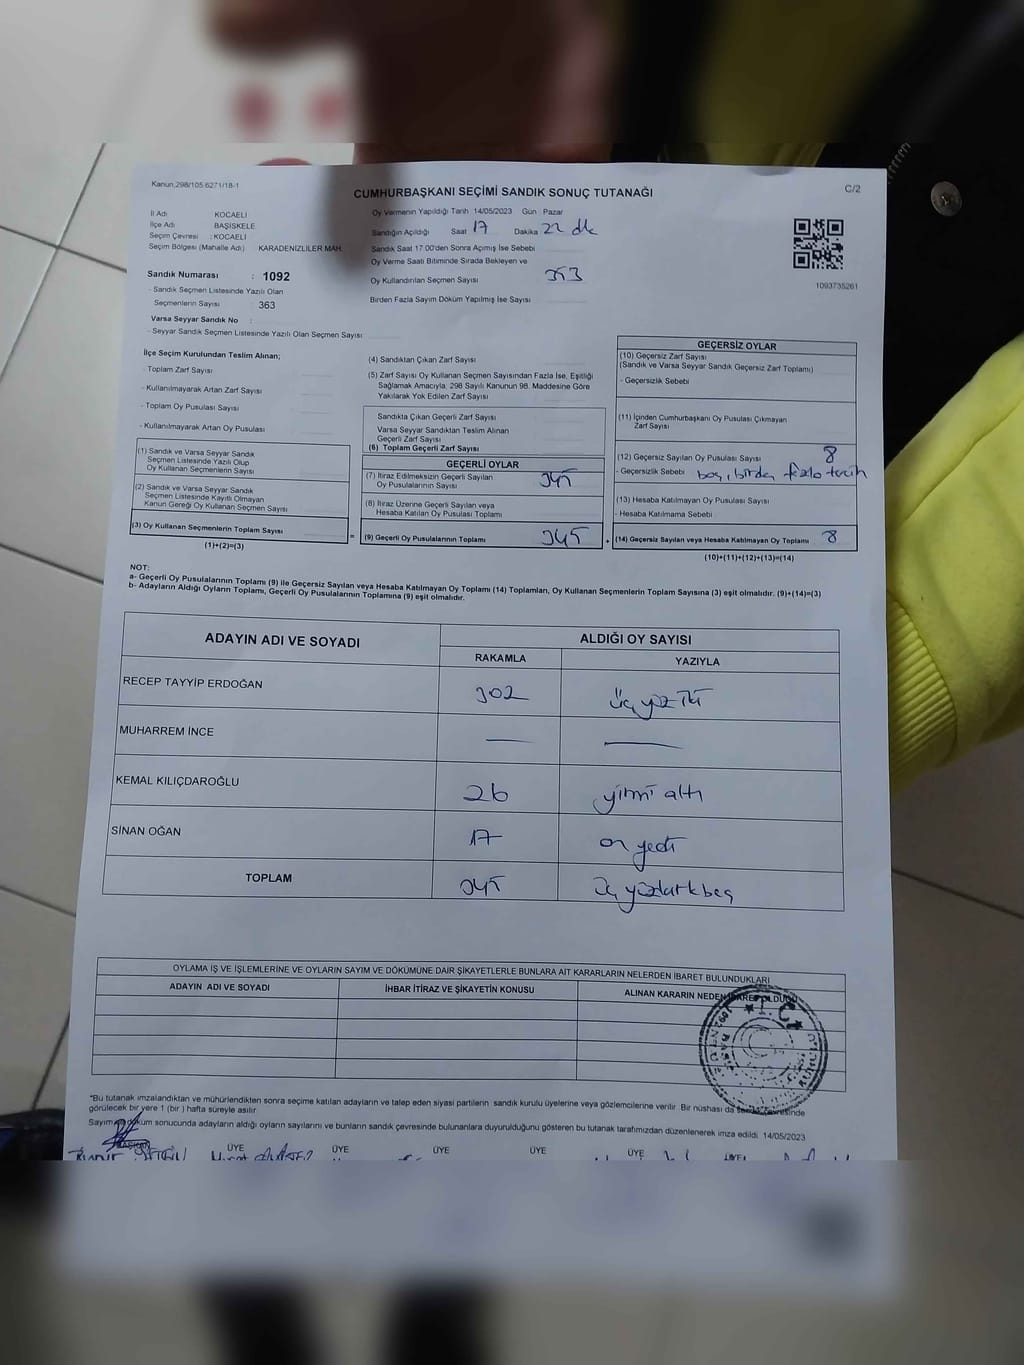 Kanun,298/105.6271/18-1
CUMHURBAŞKANI SEÇİMİ SANDIK SONUÇ TUTANAĞI
C/2
İl Adı KOCAELİ
İlçe Adı BAŞİSKELE
Seçim Çevresi : KOCAELİ
Seçim Bölgesi (Mahalle Adı) KARADENİZLİLER MAH.
Sandık Numarası : 1092
- Sandık Seçmen Listesinde Yazılı Olan
Seçmenlerin Sayısı : 363
Varsa Seyyar Sandık No :
- Seyyar Sandık Seçmen Listesinde Yazılı Olan Seçmen Sayısı
Oy Vermenin Yapıldığı Tarih 14/05/2023 Gün Pazar
Sandığın Açıldığı Saat 17 Dakika 22 dk
Sandık Saat 17.00'den Sonra Açımış İse Sebebi
Oy Verme Saati Bitiminde Sırada Bekleyen ve
Oy Kullandırılan Seçmen Sayısı 353
Birden Fazla Sayım Döküm Yapılmış İse Sayısı
1093735261
İlçe Seçim Kurulundan Teslim Alınan;
- Toplam Zarf Sayısı
- Kullanılmayarak Artan Zarf Sayısı
- Toplam Oy Pusulası Sayısı
- Kullanılmayarak Artan Oy Pusulası
(1) Sandık ve Varsa Seyyar Sandık
Seçmen Listesinde Yazılı Olup
Oy Kullanan Seçmenlerin Sayısı
(2) Sandık ve Varsa Seyyar Sandık
Seçmen Listesinde Kayıtlı Olmayan
Kanun Gereği Oy Kullanan Seçmen Sayısı
(3) Oy Kullanan Seçmenlerin Toplam Sayısı
(1)+(2)=(3)
(4) Sandıktan Çıkan Zarf Sayısı
(5) Zarf Sayısı Oy Kullanan Seçmen Sayısından Fazla İse, Eşitliği
Sağlamak Amacıyla, 298 Sayılı Kanunun 98. Maddesine Göre
Yakılarak Yok Edilen Zarf Sayısı
Sandıkta Çıkan Geçerli Zarf Sayısı
Varsa Seyyar Sandıktan Teslim Alınan
Geçerli Zarf Sayısı
(6) Toplam Geçerli Zarf Sayısı
GEÇERLİ OYLAR
(7) İtiraz Edilmeksizin Geçerli Sayılan
Oy Pusulalarının Sayısı 345
(8) İtiraz Üzerine Geçerli Sayılan veya
Hesaba Katılan Oy Pusulası Toplamı
= (9) Geçerli Oy Pusulalarının Toplamı 345 +
GEÇERSİZ OYLAR
(10) Geçersiz Zarf Sayısı
(Sandık ve Varsa Seyyar Sandık Geçersiz Zarf Toplamı)
- Geçersizlik Sebebi
(11) İçinden Cumhurbaşkanı Oy Pusulası Çıkmayan
Zarf Sayısı
(12) Geçersiz Sayılan Oy Pusulası Sayısı 8
- Geçersizlik Sebebi boş, birden fazla tercih
(13) Hesaba Katılmayan Oy Pusulası Sayısı
- Hesaba Katılmama Sebebi
(14) Geçersiz Sayılan veya Hesaba Katılmayan Oy Toplamı 8
(10)+(11)+(12)+(13)=(14)
NOT:
a- Geçerli Oy Pusulalarının Toplamı (9) ile Geçersiz Sayılan veya Hesaba Katılmayan Oy Toplamı (14) Toplamları, Oy Kullanan Seçmenlerin Toplam Sayısına (3) eşit olmalıdır. (9)+(14)=(3)
b- Adayların Aldığı Oyların Toplamı, Geçerli Oy Pusulalarının Toplamına (9) eşit olmalıdır.
ADAYIN ADI VE SOYADI ALDIĞI OY SAYISI
RAKAMLA YAZIYLA
RECEP TAYYİP ERDOĞAN 302 üç yüz iki
MUHARREM İNCE — —
KEMAL KILIÇDAROĞLU 26 yirmi altı
SİNAN OĞAN 17 on yedi
TOPLAM 345 üç yüzkırkbeş
OYLAMA İŞ VE İŞLEMLERİNE VE OYLARIN SAYIM VE DÖKÜMÜNE DAİR ŞİKAYETLERLE BUNLARA AİT KARARLARIN NELERDEN İBARET BULUNDUKLARI
ADAYIN ADI VE SOYADI İHBAR İTİRAZ VE ŞİKAYETİN KONUSU ALINAN KARARIN NEDEN İBARET OLDUĞU
T.C.
*Bu tutanak imzalandıktan ve mühürlendikten sonra seçime katılan adayların ve talep eden siyasi partilerin sandık kurulu üyelerine veya gözlemcilerine verilir. Bir nüshası da sandık çevresinde
görülecek bir yere 1 (bir) hafta süreyle asılır.
Sayım ve döküm sonucunda adayların aldığı oyların sayılarını ve bunların sandık çevresinde bulunanlara duyurulduğunu gösteren bu tutanak tarafımızdan düzenlenerek imza edildi. 14/05/2023
BAŞKAN ÜYE ÜYE ÜYE ÜYE ÜYE ÜYE